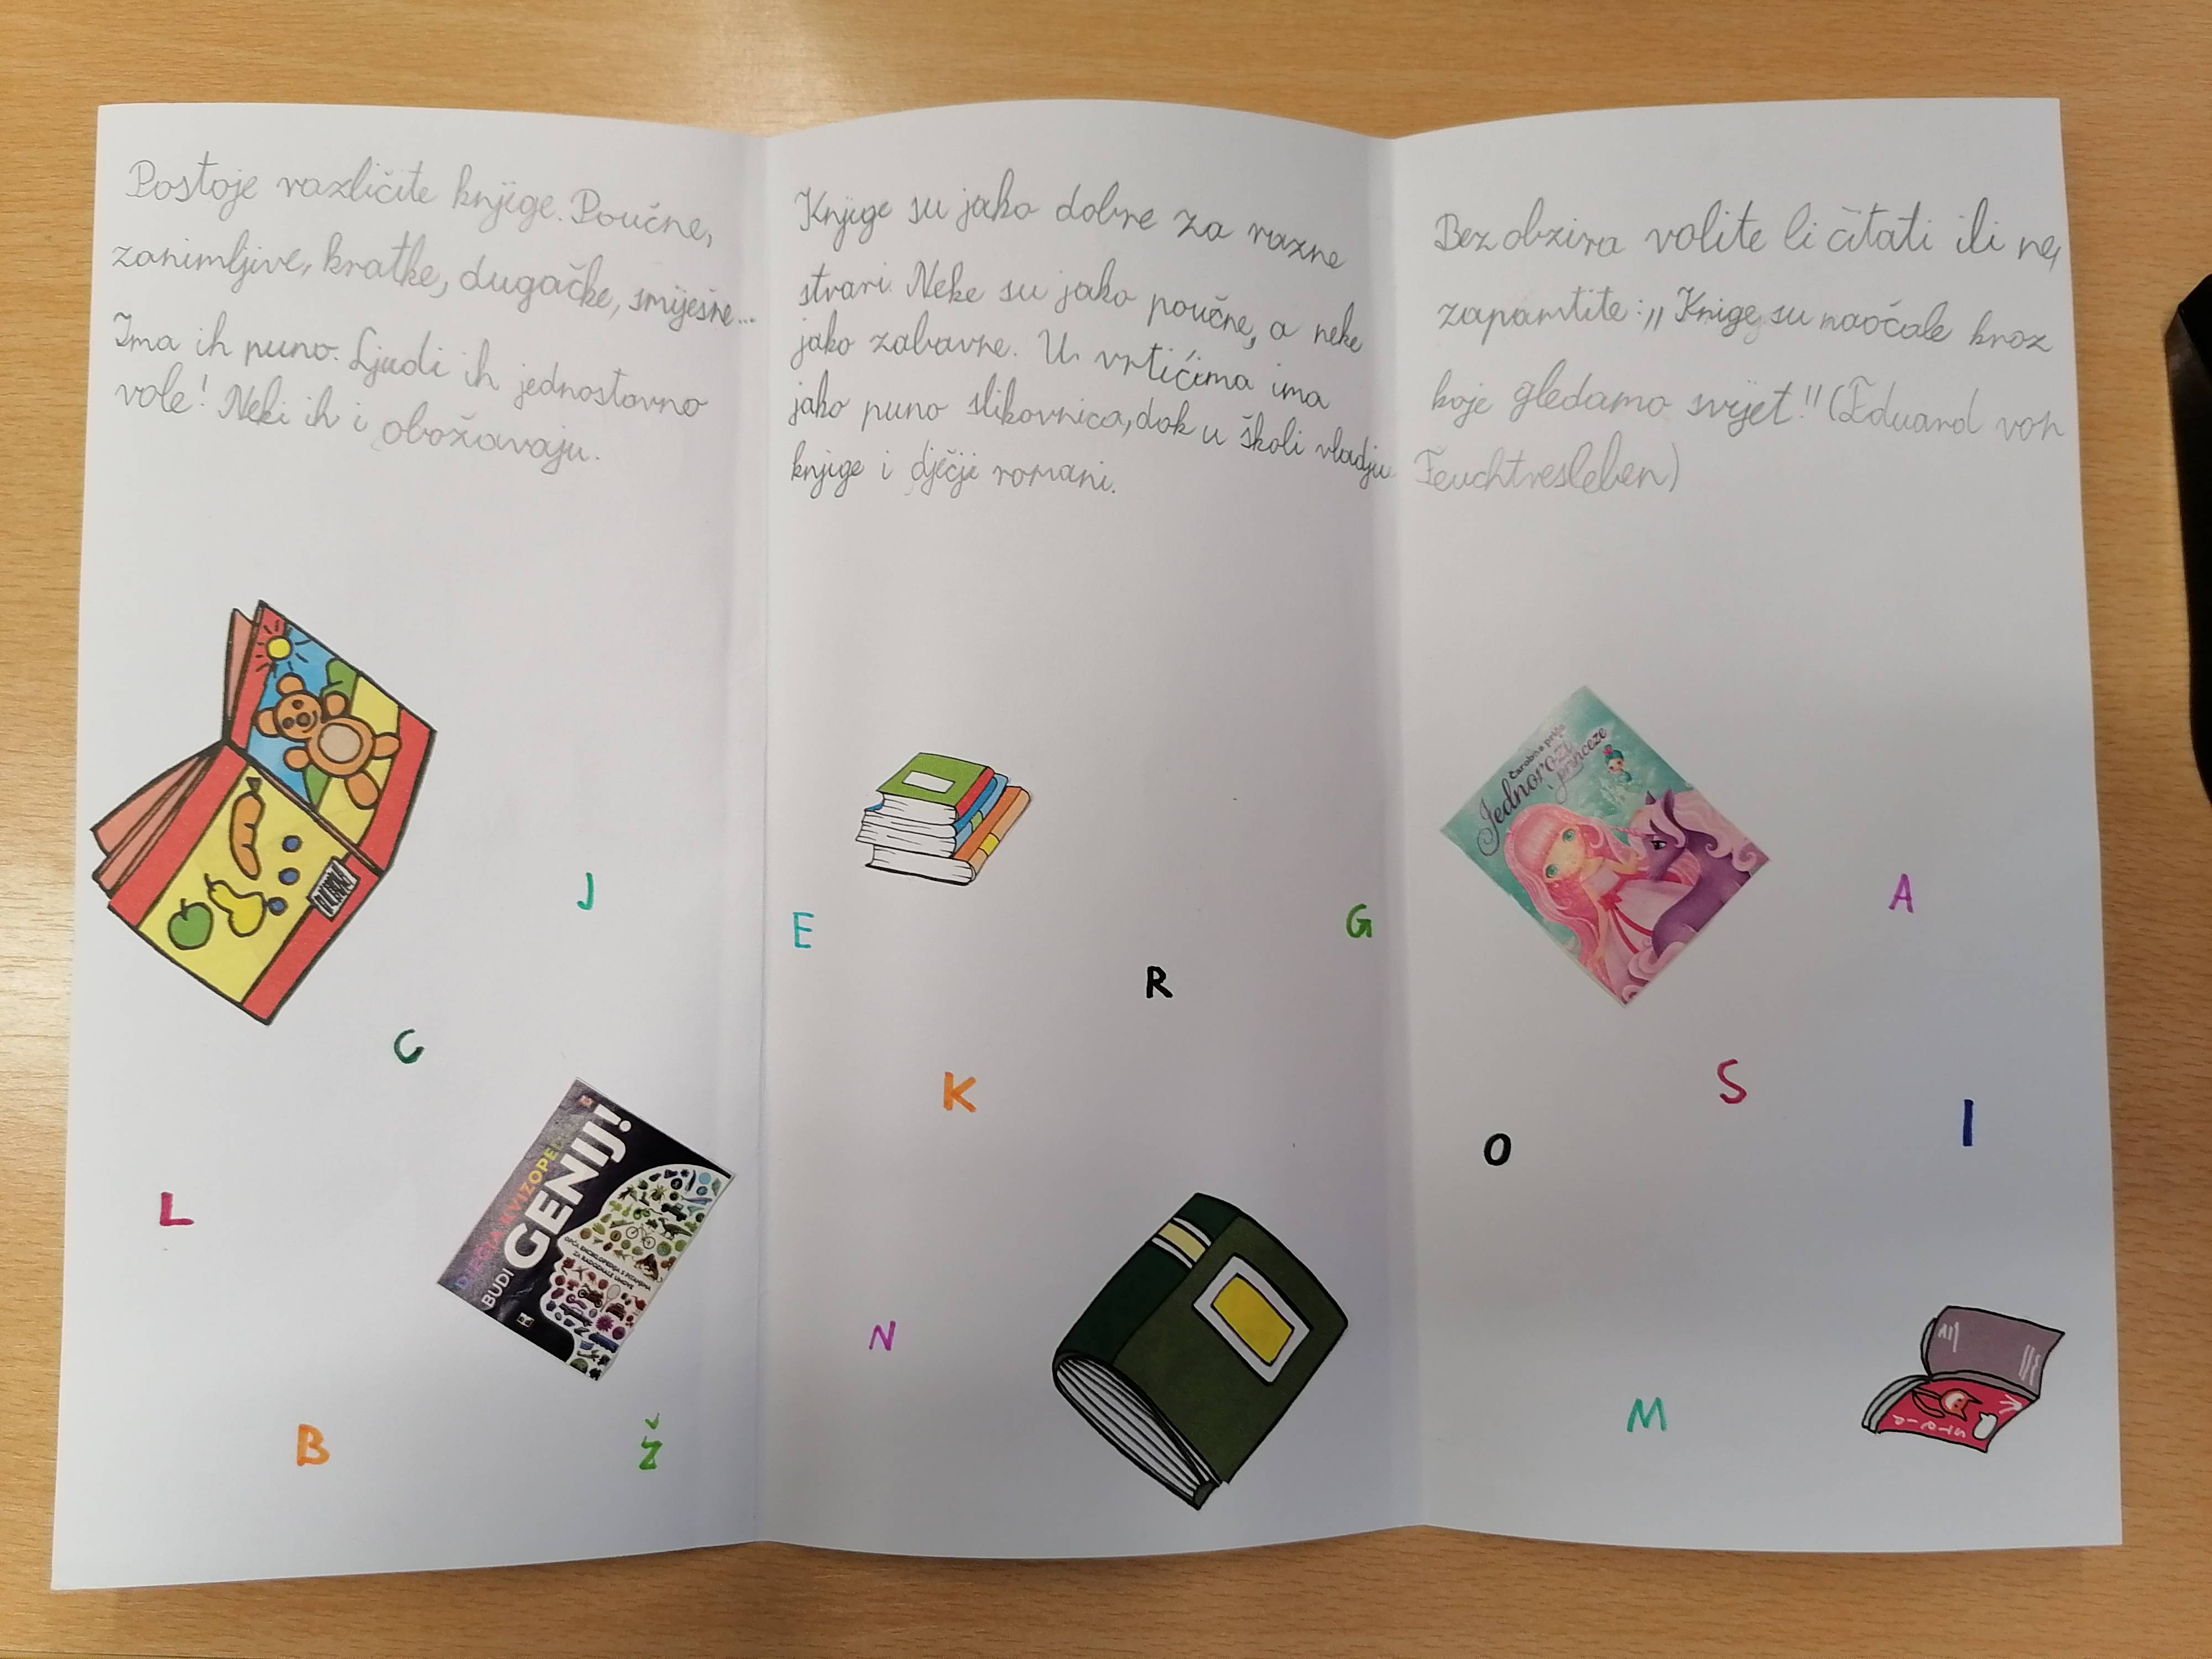 Postoje različite knjige. Poučne,
zanimljive, kratke, dugačke, smiješne...
Ima ih puno. Ljudi ih jednostavno
vole! Neki ih i obožavaju.
J
C
L
DJEČJA KVIZOPED
BUDI
GENIJ!
OPĆA ENCIKLOPEDIJA S PITANJIMA
ZA RADOZNALE UMOVE
B
Ž
Knjige su jako dobre za razne
stvari. Neke su jako poučne, a neke
jako zabavne. U vrtićima ima
jako puno slikovnica, dok u školi vladju
knjige i dječji romani.
E
G
R
K
N
Bez obzira volite li čitati ili ne,
zapamtite: „Knige su naočale kroz
koje gledamo svijet!" (Eduard von
Feuchtresleben)
Čarobne priče
Jednorozi
princeze
A
S
O
I
M